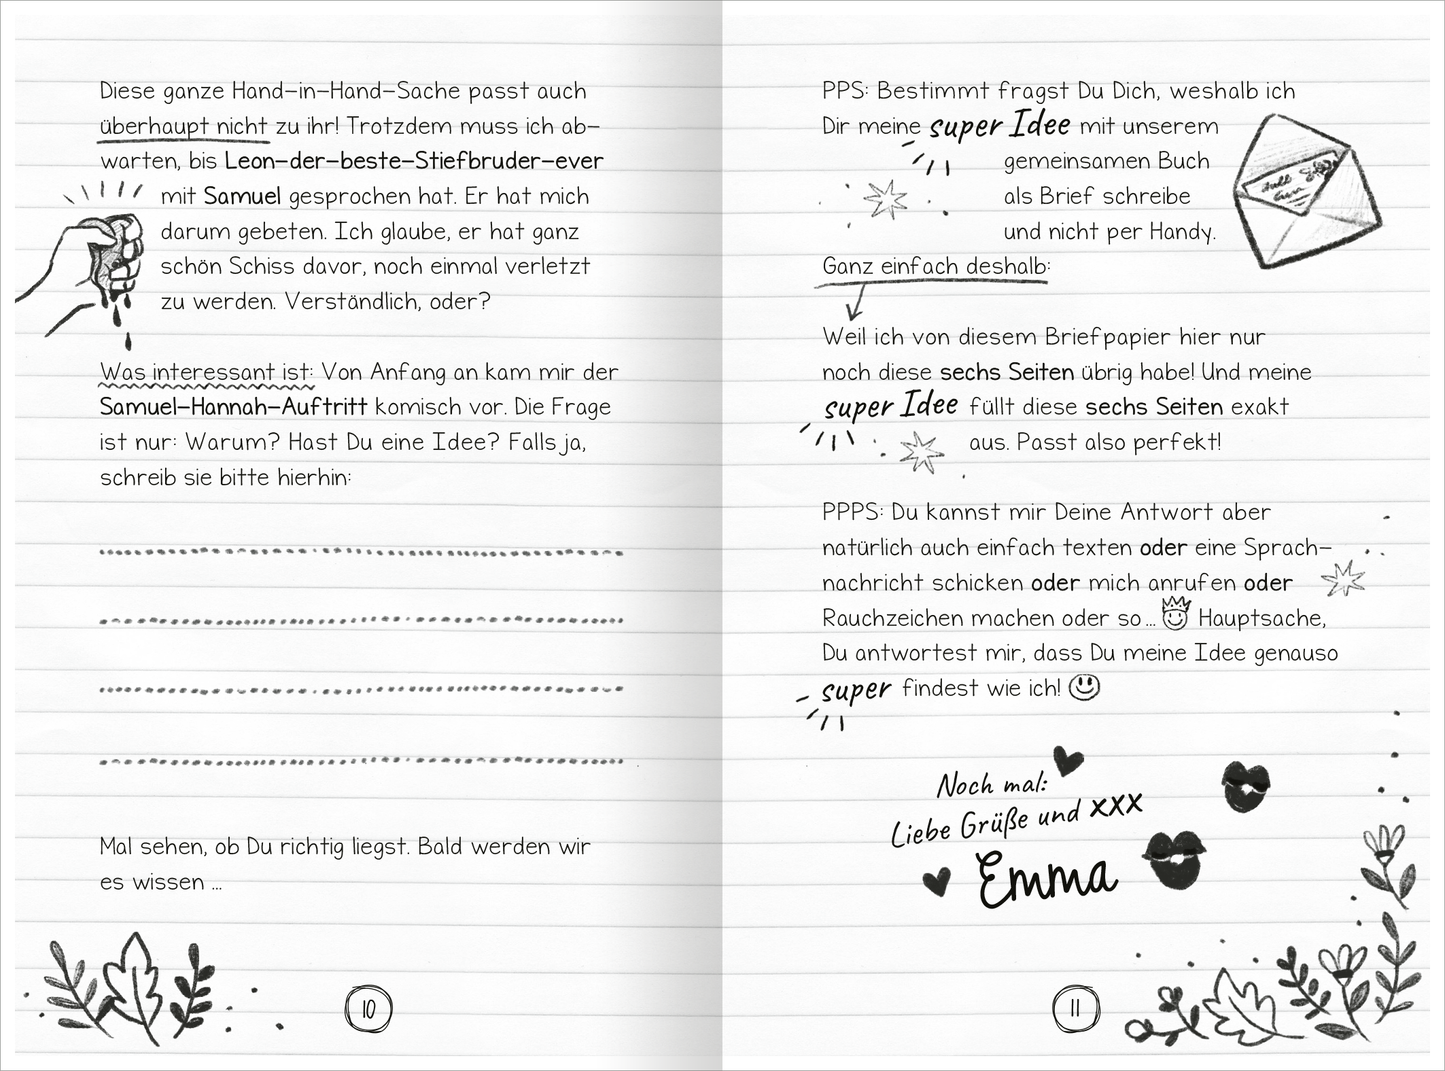 Diese ganze Hand-in-Hand-Sache passt auch
überhaupt nicht zu ihr! Trotzdem muss ich ab-
warten, bis Leon-der-beste-Stiefbruder-ever
mit Samuel gesprochen hat. Er hat mich
darum gebeten. Ich glaube, er hat ganz
schön Schiss davor, noch einmal verletzt
zu werden. Verständlich, oder?
Was interessant ist: Von Anfang an kam mir der
Samuel-Hannah-Auftritt komisch vor. Die Frage
ist nur: Warum? Hast Du eine Idee? Falls ja,
schreib sie bitte hierhin:
Mal sehen, ob Du richtig liegst. Bald werden wir
es wissen ...
10
PPS: Bestimmt fragst Du Dich, weshalb ich
Dir meine super Idee mit unserem
gemeinsamen Buch
als Brief schreibe
und nicht per Handy.
Ganz einfach deshalb:
Weil ich von diesem Briefpapier hier nur
noch diese sechs Seiten übrig habe! Und meine
super Idee füllt diese sechs Seiten exakt
aus. Passt also perfekt!
PPPS: Du kannst mir Deine Antwort aber
natürlich auch einfach texten oder eine Sprach-
nachricht schicken oder mich anrufen oder
Rauchzeichen machen oder so ... Hauptsache,
Du antwortest mir, dass Du meine Idee genauso
super findest wie ich!
Noch mal:
Liebe Grüße und XXX
Emma
11